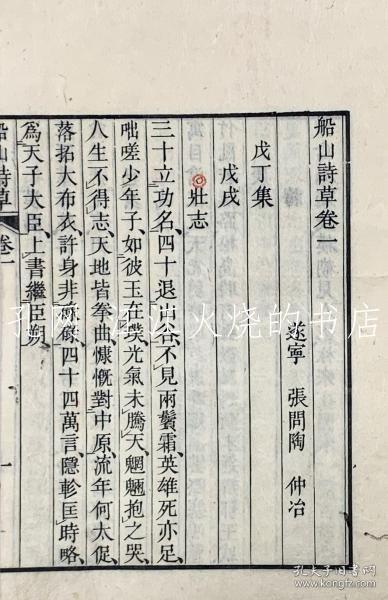 船山詩草卷一
遂寧 張問陶 仲冶
戊丁集
戊戌
壯志
三十立功名、四十退山谷、不見兩鬢霜、英雄死亦足、
咄嗟少年子、如彼玉在璞、光氣未騰天、魍魎抱之哭、
人生不得志、天地皆拳曲、慷慨對中原、流年何太促、
落拓大布衣、許身非碌碌、四十四萬言、隱軫匡時略、
爲天子大臣、上書繼臣朔、
船山詩草 卷一 一
火烧的书店
孔夫子旧书网